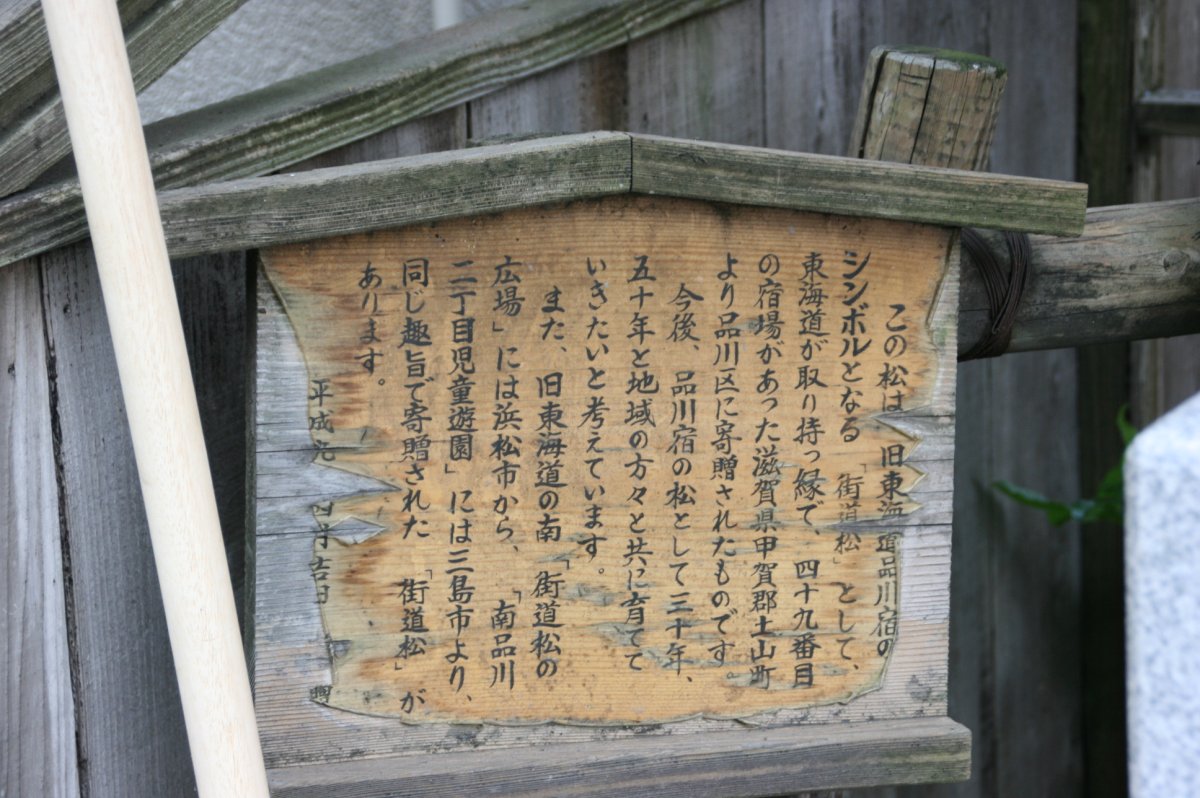 この松は、旧東海道品川宿の
シンボルとなる「街道松」として、
東海道が取り持つ縁で、四十九番目
の宿場があった滋賀県甲賀郡土山町
より品川区に寄贈されたものです。
今後、品川宿の松として三十年、
五十年と地域の方々と共に育てて
いきたいと考えています。
また、旧東海道の南「街道松の
広場」には浜松市から、「南品川
二丁目児童遊園」には三島市より、
同じ趣旨で寄贈された「街道松」が
あります。
平成元 四月吉日